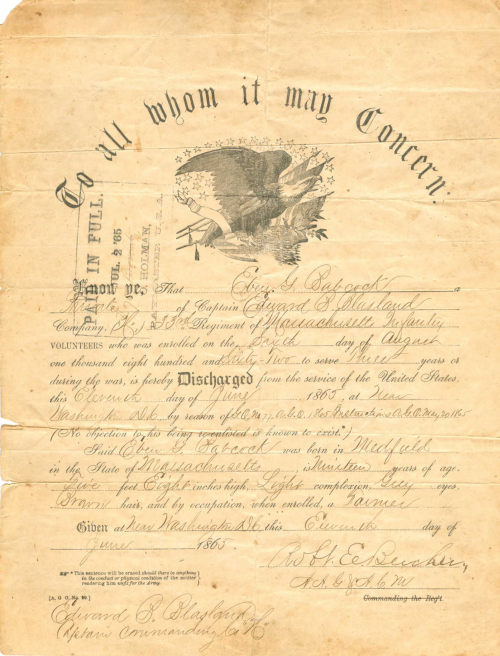 To all whom it may Concern:
PAID IN FULL.
JUL 2 '65
HOLMAN,
U. S. A.
Know ye, That Eben G. Babcock a
Private of Captain Edward B. Blasland
Company, 33rd Regiment of Massachusetts Infantry
VOLUNTEERS who was enrolled on the Sixth day of August
one thousand eight hundred and Sixty Two to serve Three years or
during the war, is hereby Discharged from the service of the United States,
this Eleventh day of June 1865, at Near
Washington D.C. by reason of
(No objection to his being re-enlisted is known to exist.*)
Said Eben G. Babcock was born in Medfield
in the State of Massachusetts is Nineteen years of age,
Five feet Eight inches high, Light complexion, Grey eyes,
Brown hair, and by occupation, when enrolled, a Farmer
Given at Near Washington D.C. this Eleventh day of
June 1865.
*This sentence will be erased should there be anything
in the conduct or physical condition of the soldier
rendering him unfit for the Army.
[A. G. O. No. 99.]
Commanding the Reg't.
Edward B. Blasland
Captain Commanding Co.